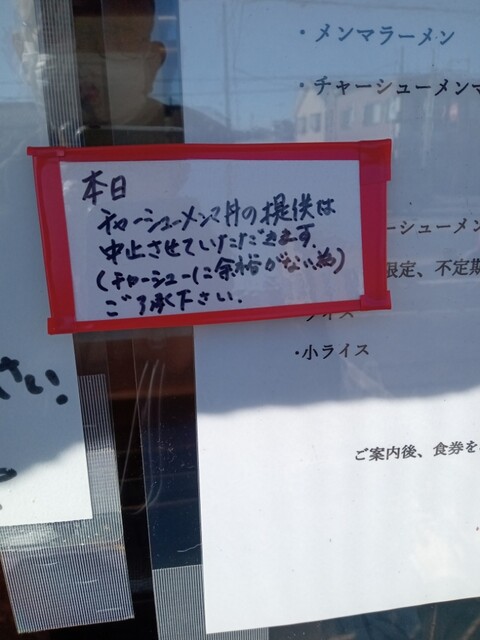 ・メンマラーメン
・チャーシューメンマ
本日
チャーシューメンマ丼の提供は
中止させていただきます。
(チャーシューに余裕がない為)
ご了承下さい。
ーシューメン
限定、不定期
ライス
・小ライス
さい!
ご案内後、食券を